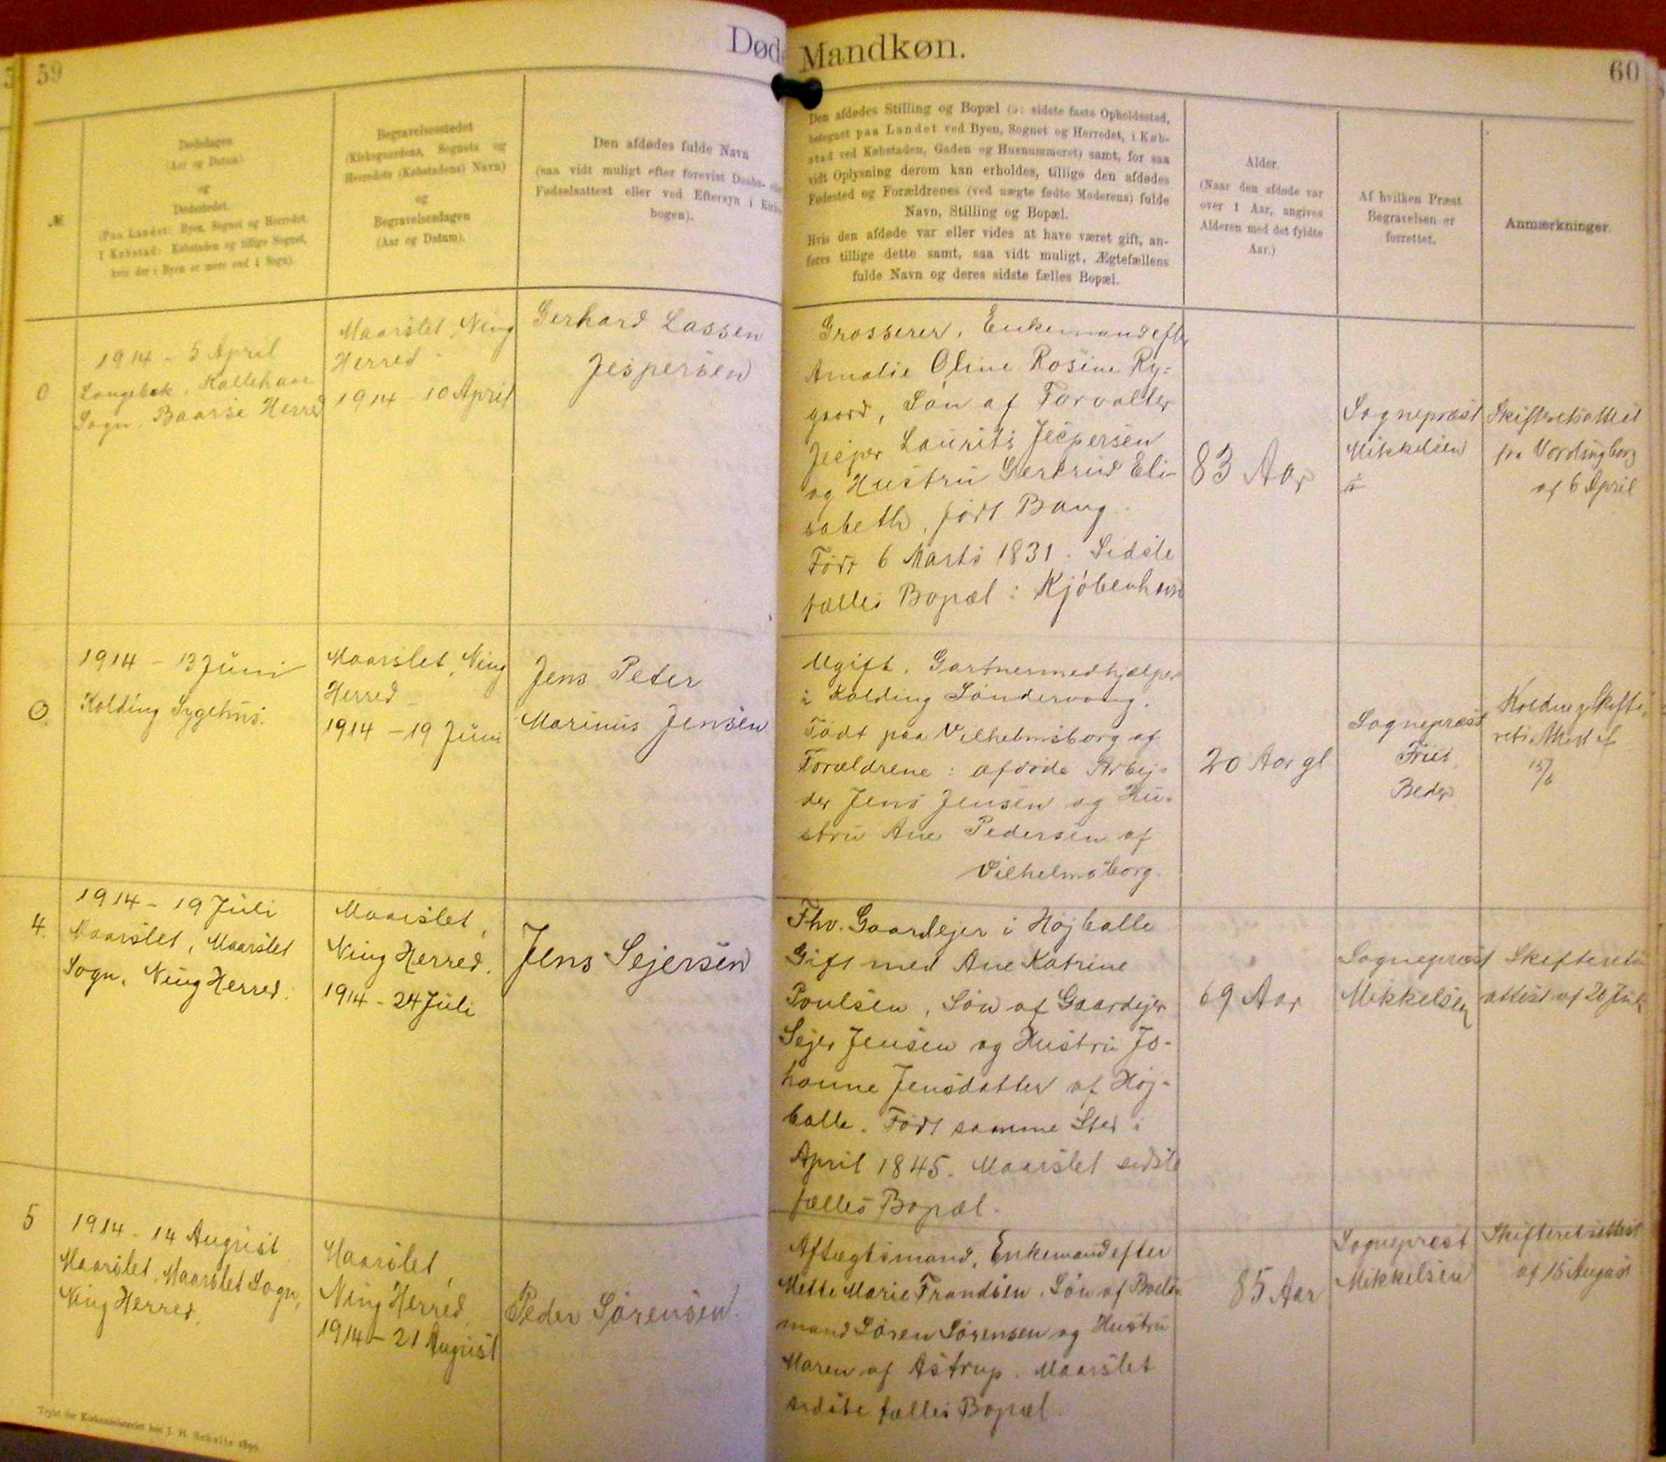 59
Døde
Mandkøn.
60
№
Dødsdagen
(Aar og Datum)
og
Dødsstedet.
(Paa Landet: Byen, Sognet og Herredet.
I Købstad: Købstaden og tillige Sognet,
hvis der i Byen er mere end 1 Sogn).
Begravelsesstedet
(Kirkegaardens, Sognets og
Herredets (Købstadens) Navn)
og
Begravelsesdagen
(Aar og Datum).
Den afdødes fulde Navn
(saa vidt muligt efter forevist Daabs- eller
Fødselsattest eller ved Eftersyn i Kirke-
bogen).
Den afdødes Stilling og Bopæl (ɔ: sidste faste Opholdssted,
betegnet paa Landet ved Byen, Sognet og Herredet, i Køb-
stad ved Købstaden, Gaden og Husnummeret) samt, for saa
vidt Oplysning derom kan erholdes, tillige den afdødes
Fødested og Forældrenes (ved uægte fødte Moderens) fulde
Navn, Stilling og Bopæl.
Hvis den afdøde var eller vides at have været gift, an-
føres tillige dette samt, saa vidt muligt, Ægtefællens
fulde Navn og deres sidste fælles Bopæl.
Alder.
(Naar den afdøde var
over 1 Aar, angives
Alderen med det fyldte
Aar.)
Af hvilken Præst
Begravelsen er
forrettet.
Anmærkninger.
0
1914 - 5 April
Langebæk, Kallehave
Sogn, Baarse Herred
Maarslet, Ning
Herred -
1914 - 10 April
Gerhard Lassen
Jespersen
Grosserer, Enkemand efter
Amalie Oline Rosine Ry=
gaard, Søn af Forvalter
Jesper Laurits Jespersen
og Hustru Gertrud Eli-
sabeth, født Bang.
Født 6 Marts 1831. Sidste
fælles Bopæl: Kjøbenhavn
83 Aar
Sognepræst
Mikkelsen
Skifteretsattest
fra Vordingborg
af 6 April
0.
1914 - 13 Juni
Kolding Sygehus.
Maarslet, Ning
Herred -
1914 - 19 Juni
Jens Peter
Marinus Jensen
Ugift. Gartnermedhjælper
i Kolding Søndervang.
Født paa Vilhelmsborg af
Forældrene: afdøde Arbej=
der Jens Jensen og Hu-
stru Ane Pedersen af
Vilhelmsborg.
20 Aar gl
Sognepræst
Friis
Beder
Kolding Skifte-
rets Attest af
15/6
4.
1914 - 19 Juli
Maarslet, Maarslet
Sogn, Ning Herred.
Maarslet,
Ning Herred.
1914 - 24 Juli
Jens Sejersen
Fhv. Gaardejer i Højballe
Gift med Ane Katrine
Poulsen, Søn af Gaardejer
Sejer Jensen og Hustru Jo-
hanne Jensdatter af Høj-
balle. Født samme Sted i
April 1845. Maarslet sidste
fælles Bopæl.
69 Aar
Sognepræst
Mikkelsen
Skifterets
attest af 20 Juli
5
1914 - 14 August
Maarslet, Maarslet Sogn,
Ning Herred.
Maarslet,
Ning Herred
1914 - 21 August
Peder Sørensen.
Aftægtsmand, Enkemand efter
Mette Marie Frandsen. Søn af Boels-
mand Søren Sørensen og Hustru
Maren af Astrup. Maarslet
sidste fælles Bopæl
85 Aar
Sognepræst
Mikkelsen
Skifteretsattest
af 15 August
Trykt for Kirkeministeriet hos J. H. Schultz